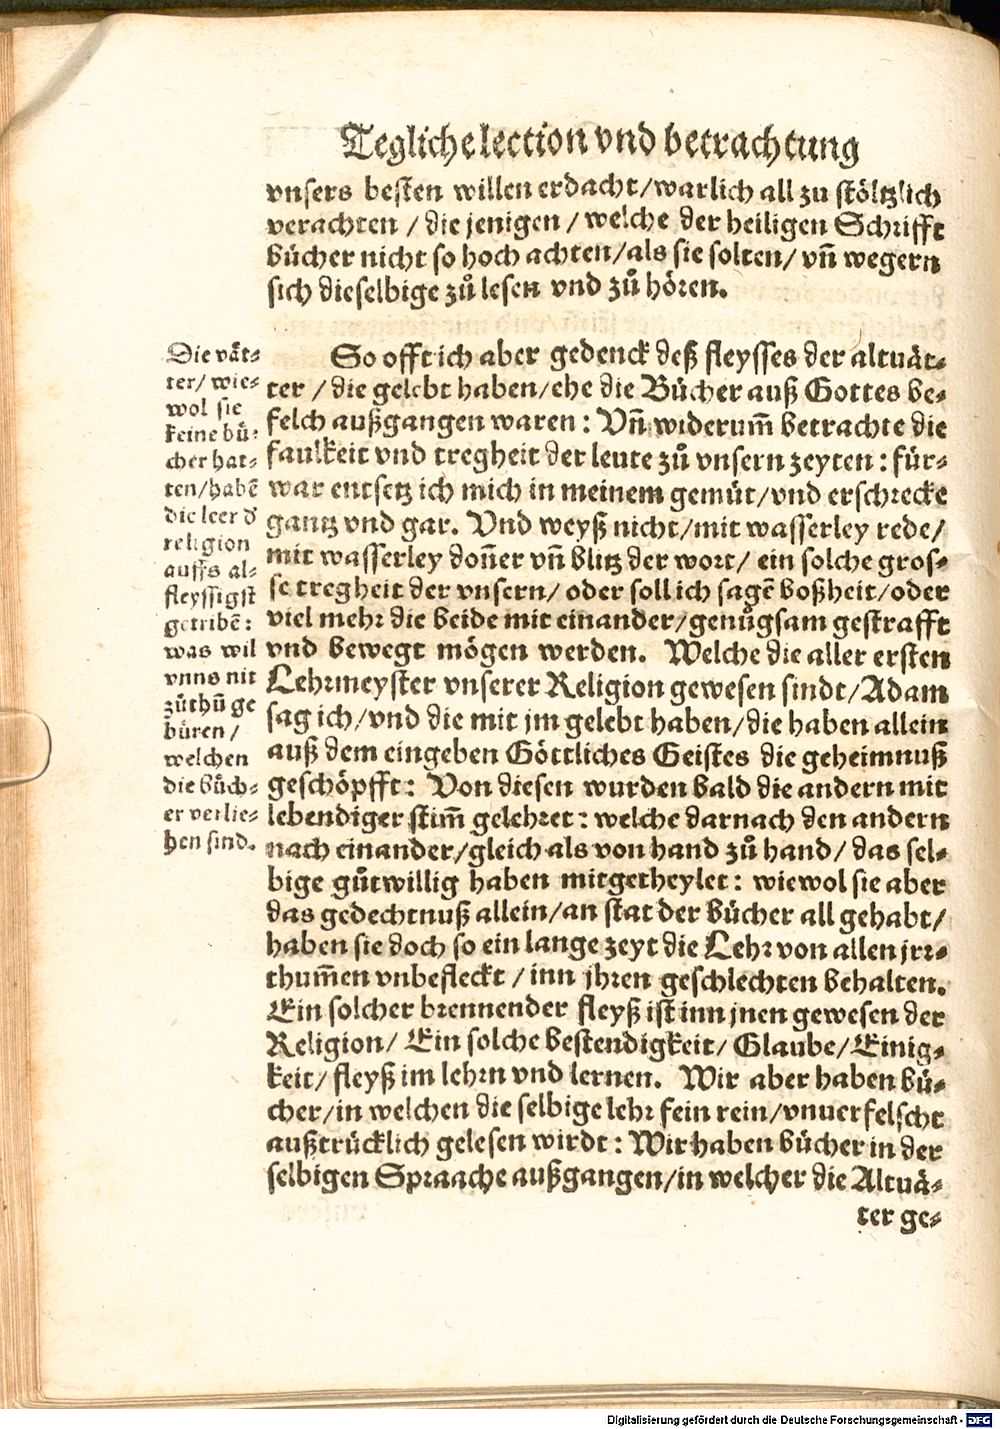 Tegliche lection vnd betrachtung
vnsers besten willen erdacht/warlich all zu stöltzlich
verachten / die jenigen / welche der heiligen Schrifft
bücher nicht so hoch achten/als sie solten/ vñ wegern
sich dieselbige zů lesen vnd zů hören.
Die vät⸗
ter/ wie⸗
wol sie
keine bü⸗
cher hat⸗
ten/habẽ
die leer d'
religion
auffs al⸗
fleyssigst
getribẽ:
was wil
vnns nit
zůthũ ge
büren /
welchen
die büch⸗
er verlie⸗
hen sind.
So offt ich aber gedenck deß fleysses der altuät⸗
ter / die gelebt haben/ehe die Bücher auß Gottes be⸗
felch außgangen waren: Vñ widerum̃ betrachte die
faulkeit vnd tregheit der leute zů vnsern zeyten: für⸗
war entsetz ich mich in meinem gemüt/vnd erschrecke
gantz vnd gar. Vnd weyß nicht/mit wasserley rede/
mit wasserley doñer vñ blitz der wort/ ein solche gros⸗
se tregheit der vnsern/ oder soll ich sagẽ boßheit/oder
viel mehr die beide mit einander/genůgsam gestrafft
vnd bewegt mögen werden. Welche die aller ersten
Lehrmeyster vnserer Religion gewesen sindt/Adam
sag ich/vnd die mit jm gelebt haben/die haben allein
auß dem eingeben Göttliches Geistes die geheimnuß
geschöpfft: Von diesen wurden bald die andern mit
lebendiger stim̃ gelehret: welche darnach den andern
nach einander/gleich als von hand zů hand/ das sel⸗
bige gůtwillig haben mitgetheylet: wiewol sie aber
das gedechtnuß allein/an stat der Bücher all gehabt/
haben sie doch so ein lange zeyt die Lehr von allen jrr⸗
thum̃en vnbefleckt / inn jhren geschlechten behalten.
Ein solcher brennender fleyß ist inn jnen gewesen der
Religion/ Ein solche bestendigkeit/ Glaube/Einig⸗
keit/ fleyß im lehrn vnd lernen. Wir aber haben bü⸗
cher/in welchen die selbige lehr fein rein/vnuerfelscht
außtrücklich gelesen wirdt: Wir haben bücher in der
selbigen Spraache außgangen/in welcher die Altuä⸗
ter ge⸗
Digitalisierung gefördert durch die Deutsche Forschungsgemeinschaft - DFG